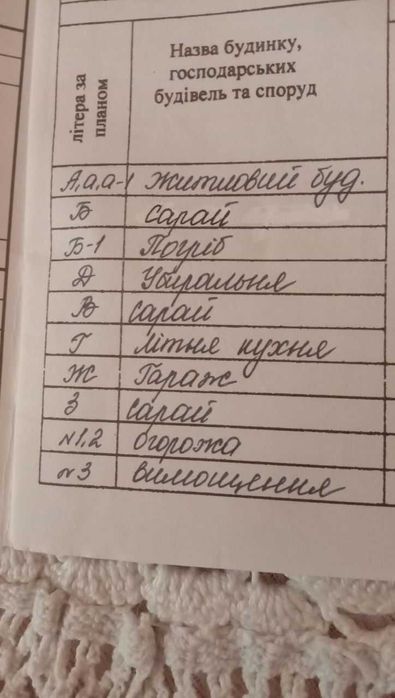 літера за
планом
Назва будинку,
господарських
будівель та споруд
А,а,а-1 Житловий буд.
Б сарай
Б-1 Погріб
Д Убиральня
В сарай
Г Літня кухня
Ж Гараж
З сарай
№1,2 огорожа
№3 вимощення